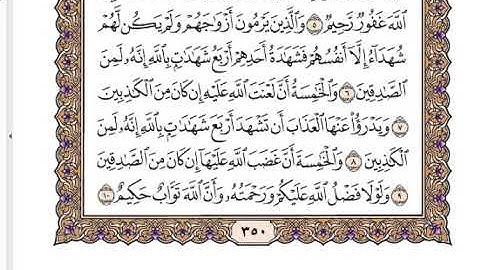 اللَّهَ غَفُورٌ رَّحِيمٌ ٥ وَالَّذِينَ يَرْمُونَ أَزْوَاجَهُمْ وَلَمْ يَكُن لَّهُمْ
شُهَدَاءُ إِلَّا أَنفُسُهُمْ فَشَهَادَةُ أَحَدِهِمْ أَرْبَعُ شَهَادَاتٍ بِاللَّهِ إِنَّهُ لَمِنَ
الصَّادِقِينَ ٦ وَالْخَامِسَةُ أَنَّ لَعْنَتَ اللَّهِ عَلَيْهِ إِن كَانَ مِنَ الْكَاذِبِينَ
٧ وَيَدْرَؤُا عَنْهَا الْعَذَابَ أَن تَشْهَدَ أَرْبَعَ شَهَادَاتٍ بِاللَّهِ إِنَّهُ لَمِنَ
الْكَاذِبِينَ ٨ وَالْخَامِسَةَ أَنَّ غَضَبَ اللَّهِ عَلَيْهَا إِن كَانَ مِنَ الصَّادِقِينَ
٩ وَلَوْلَا فَضْلُ اللَّهِ عَلَيْكُمْ وَرَحْمَتُهُ وَأَنَّ اللَّهَ تَوَّابٌ حَكِيمٌ ١٠
٣٥٠